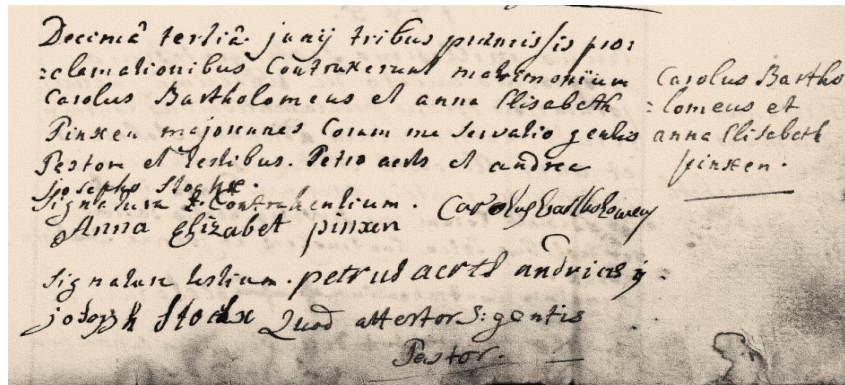 Decimâ tertiâ junij tribus præmissis pro:
:clamationibus Contraxerunt matrimonium
Carolus Bartholomeus et anna Elisabeth
Pinxten majorennes Coram me Servatio gentis
Pastore et testibus. Petro aerts et andrea
josepho Stockx.
Signatura Contrahentium. Carolus bartholomeus
Anna Elizabet pinxten
Signature testium. petrus aerts andrias j
joseph Stockx Quod attestor S: gentis
Pastor.
Carolus Bartho
:lomeus et
anna Elisabeth
pinxten.